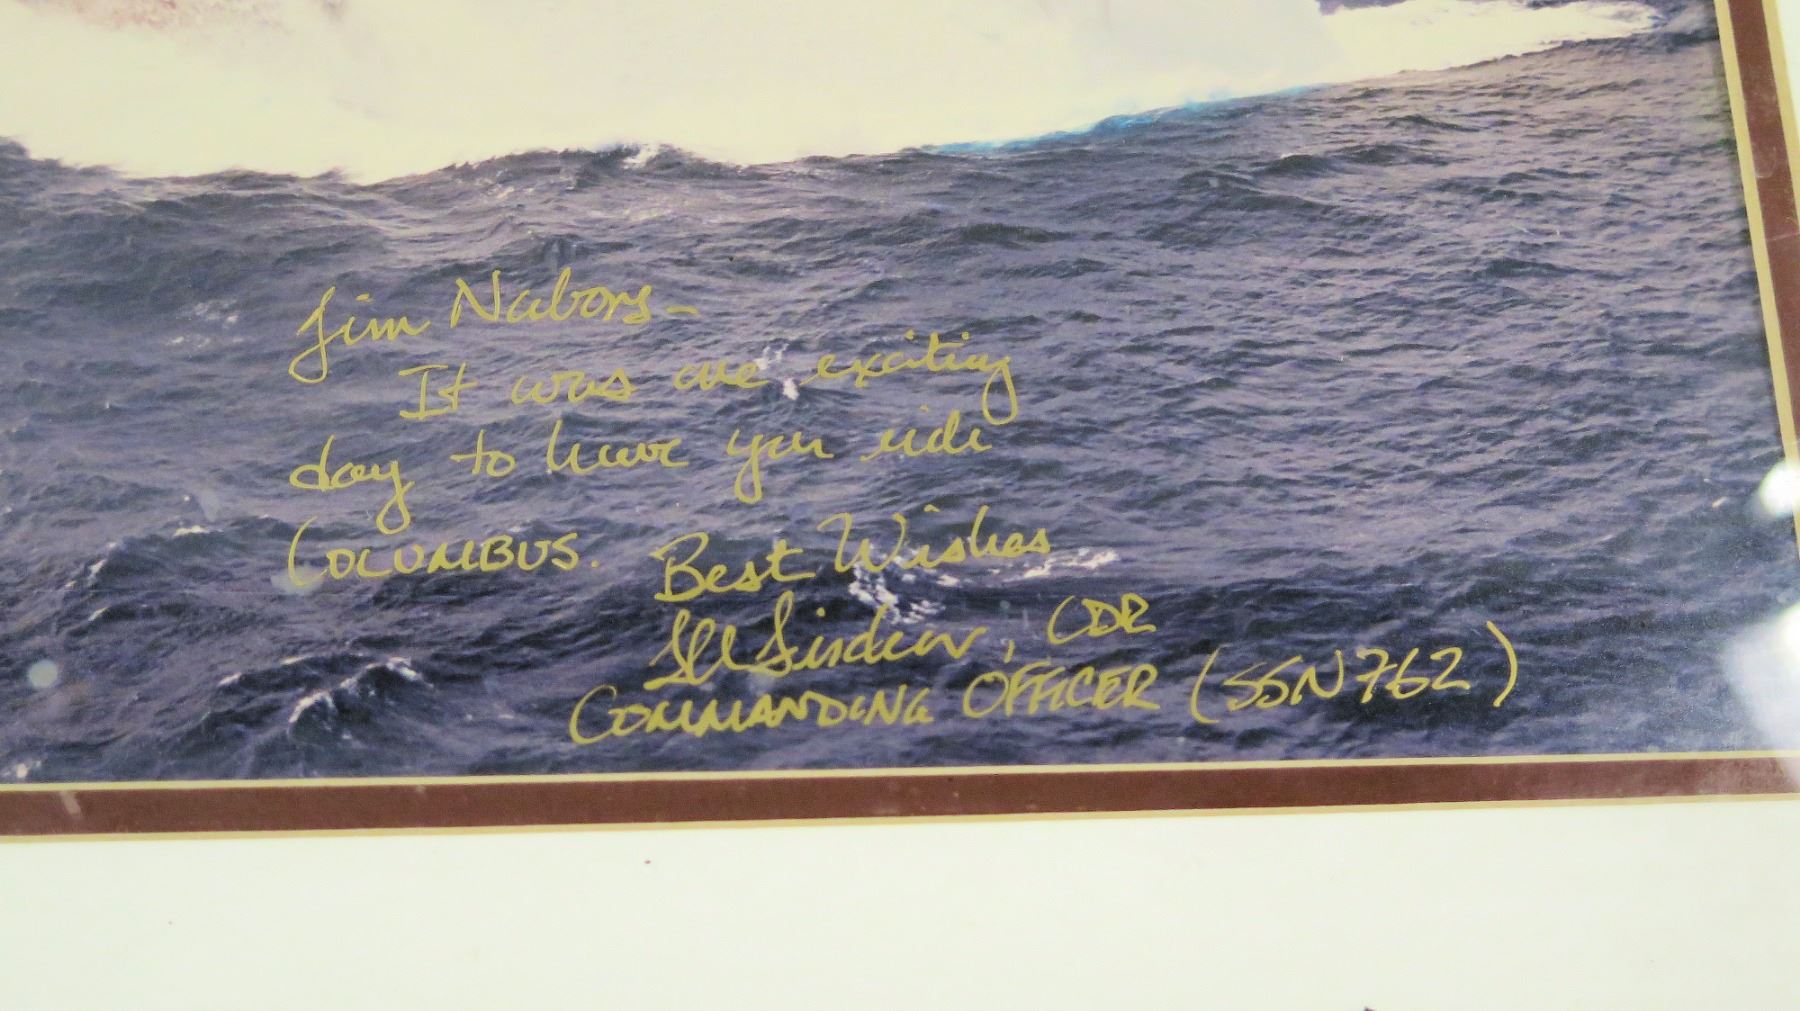 Jim Nabors-
It was one exciting
day to have you ride
COLUMBUS. Best Wishes
CDR
COMMANDING OFFICER (SSN762)